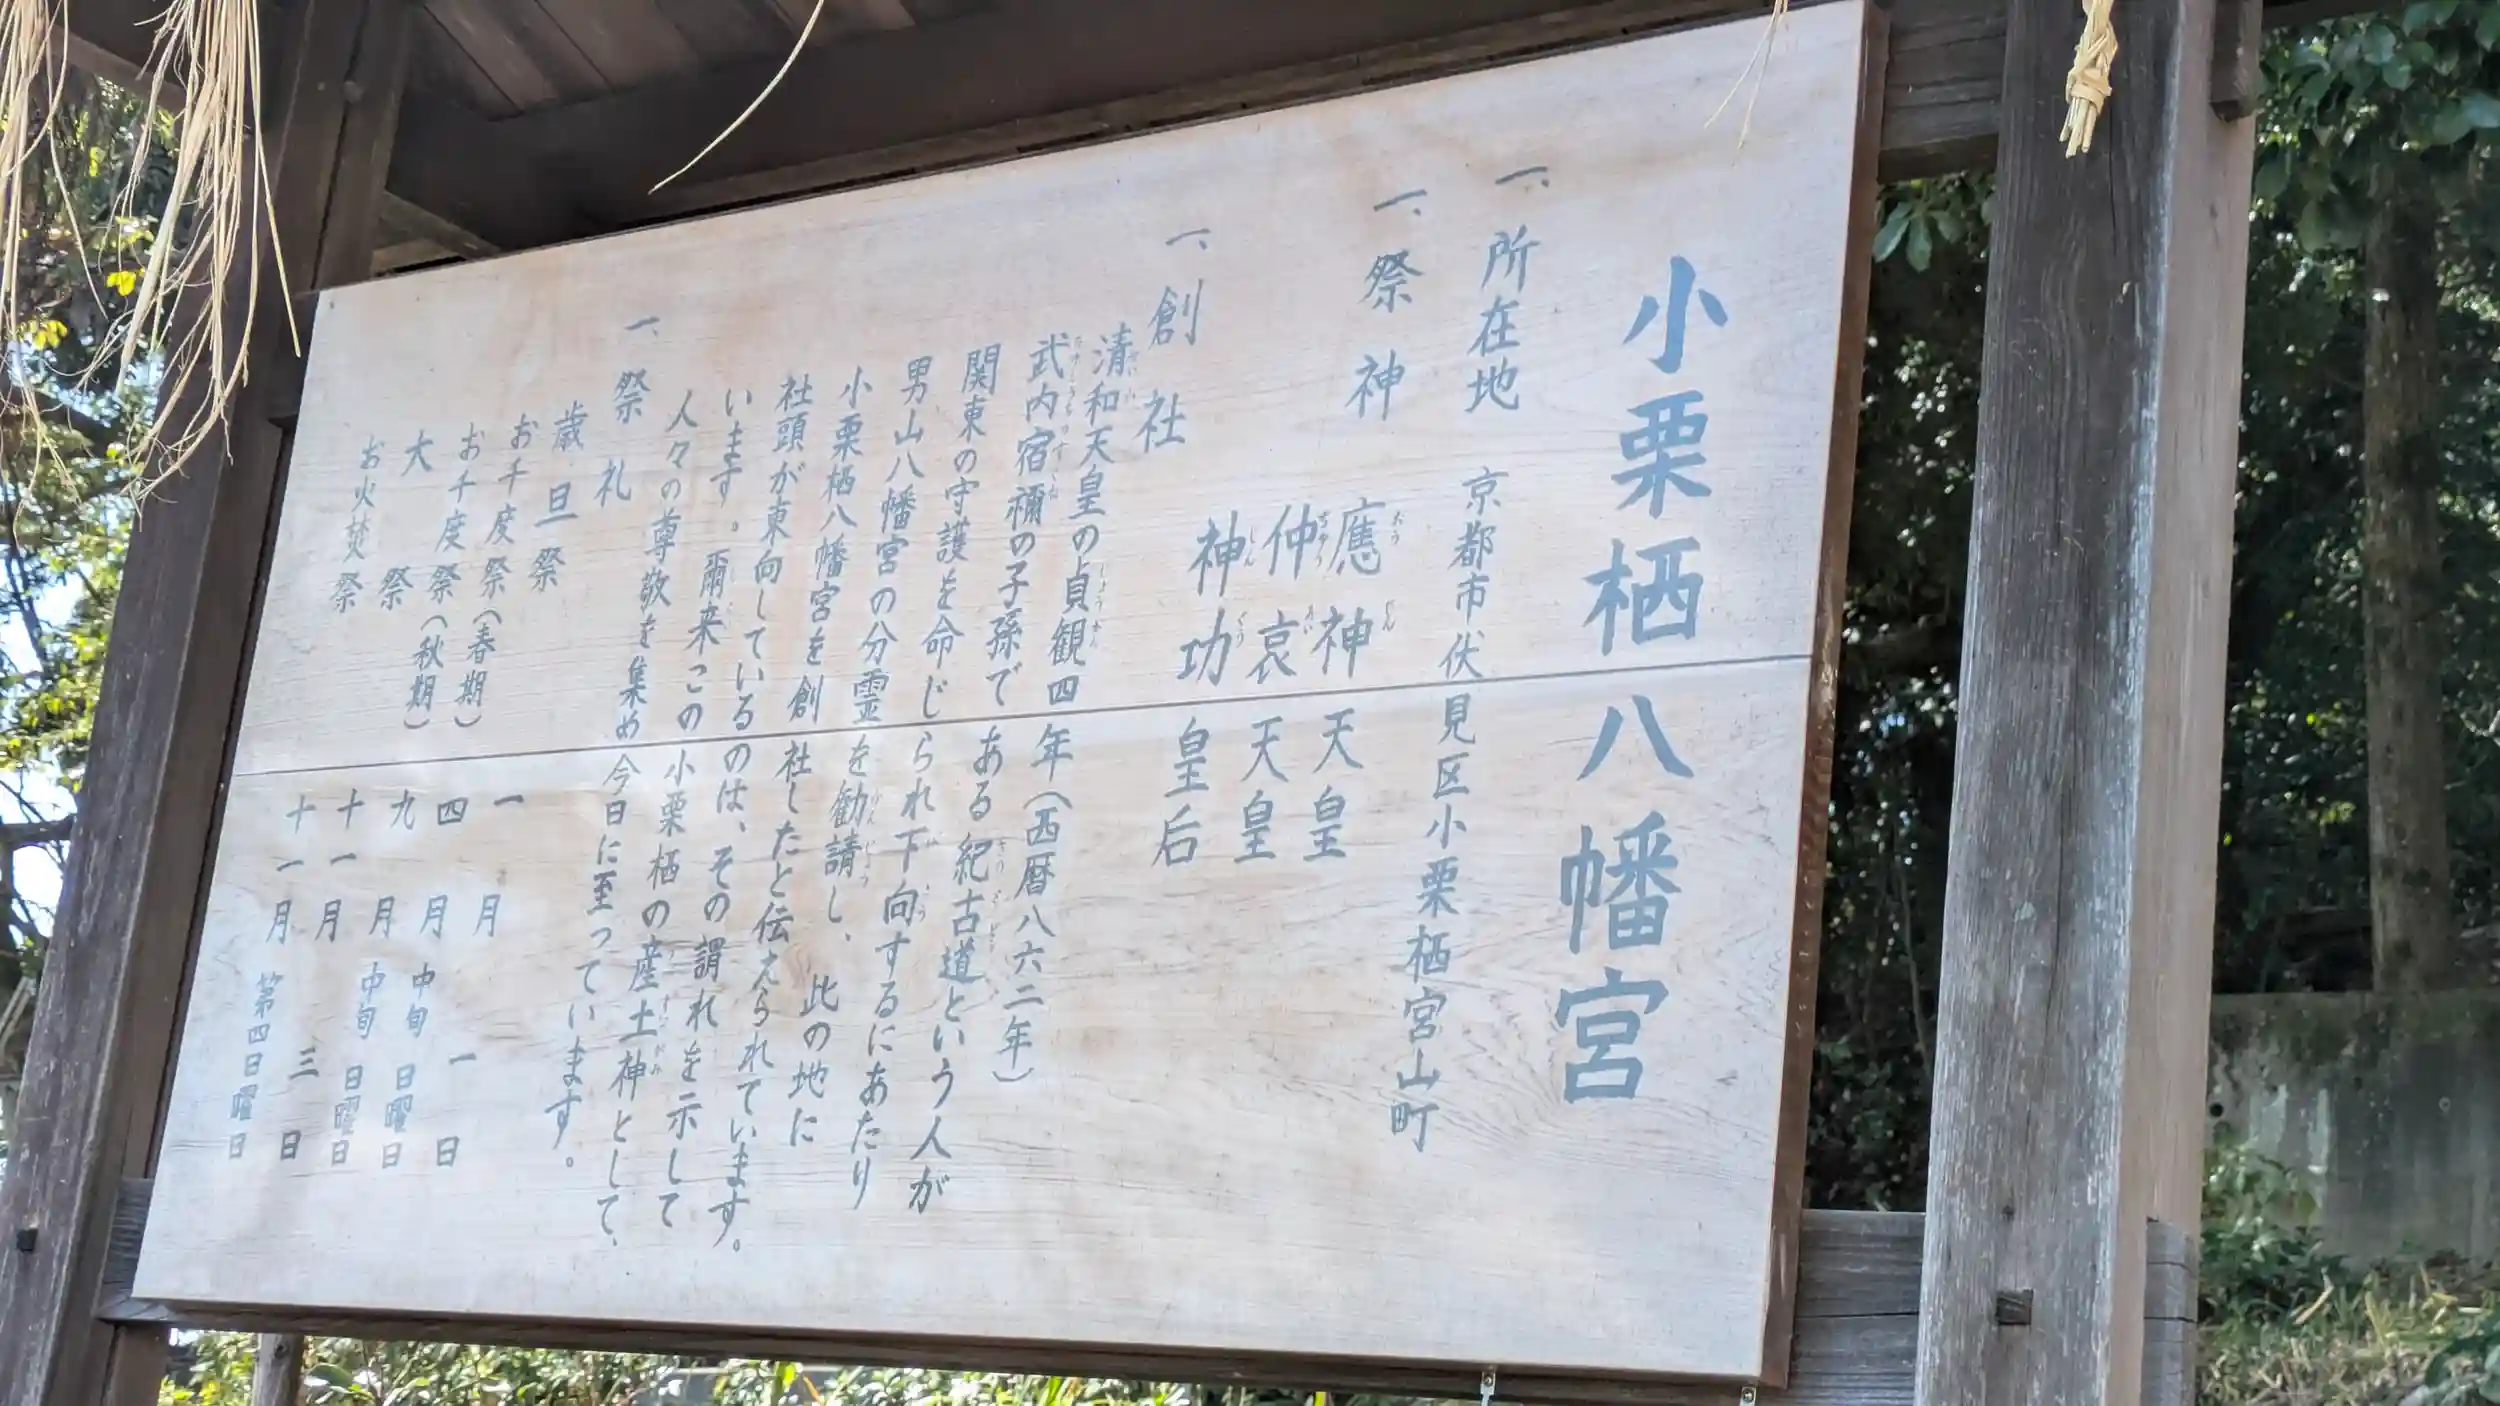 小栗栖八幡宮
一、所在地 京都市伏見区小栗栖宮山町
一、祭神 應神天皇
仲哀天皇
神功皇后
一、創社
清和天皇の貞観四年(西暦八六二年)
武内宿禰の子孫である紀古道という人が
関東の守護を命じられ下向するにあたり
男山八幡宮の分霊を勧請し、此の地に
小栗栖八幡宮を創社したと伝えられています。
社頭が東向しているのは、その謂れを示して
います。爾来この小栗栖の産土神として、
人々の尊敬を集め今日に至っています。
一、祭礼
歳旦祭 一月一日
お千度祭(春期) 四月中旬日曜日
お千度祭(秋期) 九月中旬日曜日
大祭 十一月三日
お火焚祭 十一月第四日曜日